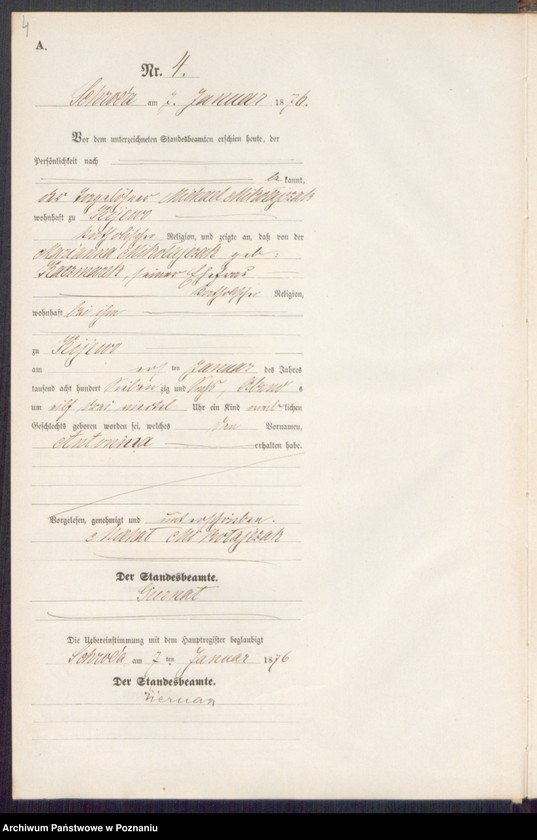 4
A.
Nr. 4.
Schroda am 7. Januar 1876.
Vor dem unterzeichneten Standesbeamten erschien heute, der
Persönlichkeit nach
be kannt,
der Michael Mikołajczak
wohnhaft zu Kijewo
katholischer Religion, und zeigte an, daß von der
Marianna Mikołajczak geb.
Kaczmarek, seiner Ehefrau
katholischer Religion,
wohnhaft bei ihm
zu Kijewo
am ten Januar des Jahres
tausend acht hundert Sieben zig und Sechs, Abends
um elf drei viertel Uhr ein Kind weiblichen
Geschlechts geboren worden sei, welches den Vornamen,
Antonina erhalten habe.
Vorgelesen, genehmigt und unterschrieben.
Michał Mikołajczak
Der Standesbeamte.
Die Uebereinstimmung mit dem Hauptregister beglaubigt
Schroda am 7 ten Januar 1876
Der Standesbeamte.
Archiwum Państwowe w Poznaniu